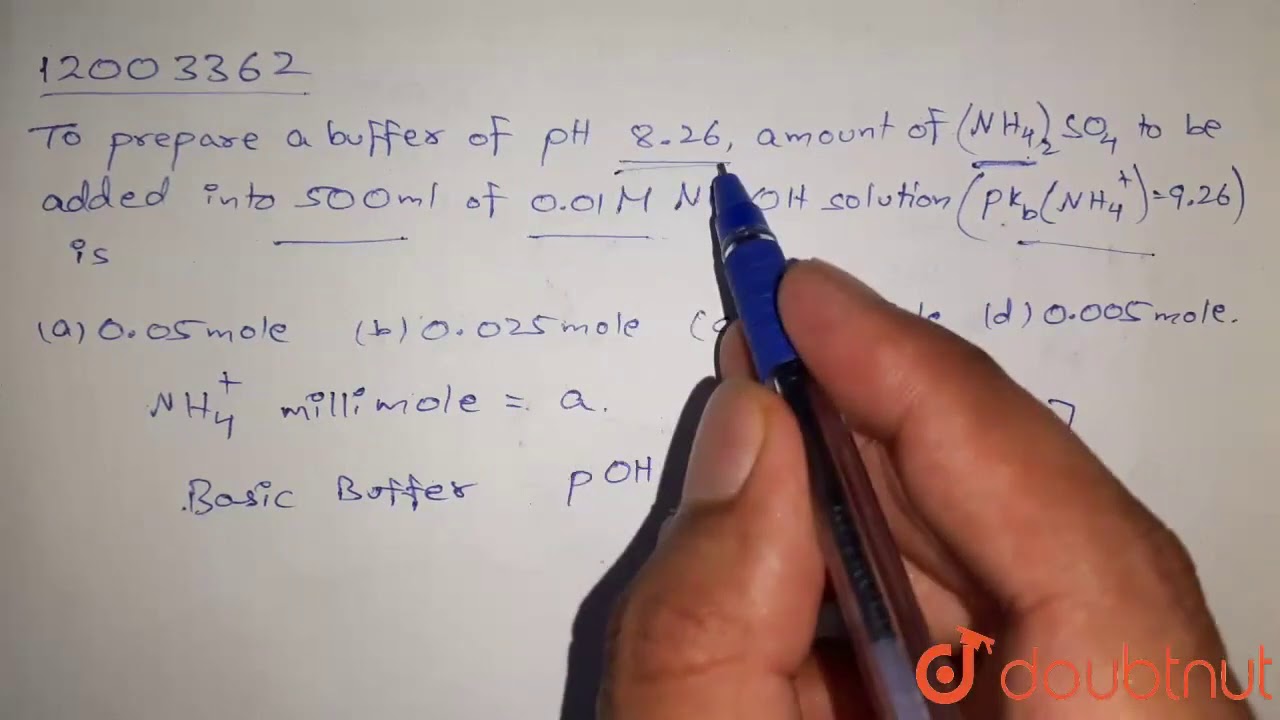 12003362
To prepare a buffer of pH 8.26, amount of (NH4)2SO4 to be
added into 500ml of 0.01M OH solution (pKb(NH4+)=9.26)
is
(a) 0.05mole (b) 0.025mole (d) 0.005mole.
NH4+ millimole = a.
Basic Buffer pOH
doubtnut